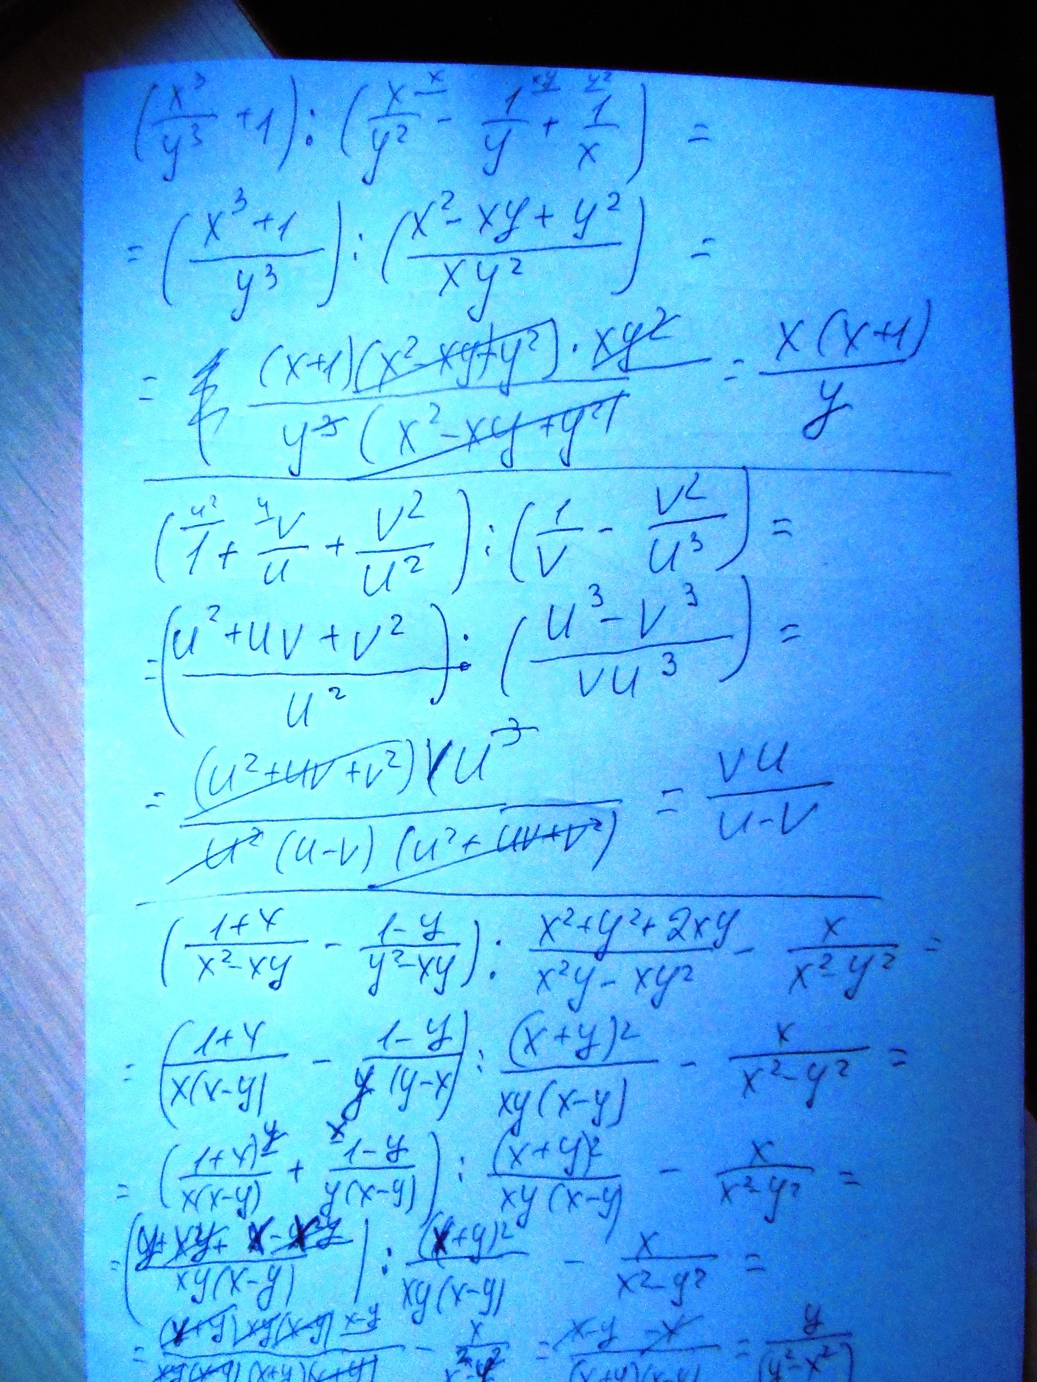 (x³/y³ + 1) : (x/y² - 1/y + 1/x) =
= (x³+1/y³) : (x²-xy+y²/xy²) =
= (x+1)(x²-xy+y²)·xy²/y³(x²-xy+y²) = x(x+1)/y
(1 + v/u + v²/u²) : (1/v - v²/u³) =
= (u²+uv+v²/u²) : (u³-v³/vu³) =
= (u²+uv+v²)vu³/u²(u-v)(u²+uv+v²) = vu/u-v
(1+x/x²-xy - 1-y/y²-xy) : x²+y²+2xy/x²y-xy² - x/x²-y² =
= (1+x/x(x-y) - 1-y/y(y-x)) : (x+y)²/xy(x-y) - x/x²-y² =
= (1+x/x(x-y) + 1-y/y(x-y)) : (x+y)²/xy(x-y) - x/x²-y² =
= (y+xy+x-xy/xy(x-y)) : (x+y)²/xy(x-y) - x/x²-y² =
= (x+y)xy(x-y) x-y/xy(x-y)(x+y)(x+y) - x/x²-y² = x-y-x/(x+y)(x-y) = y/(y²-x²)